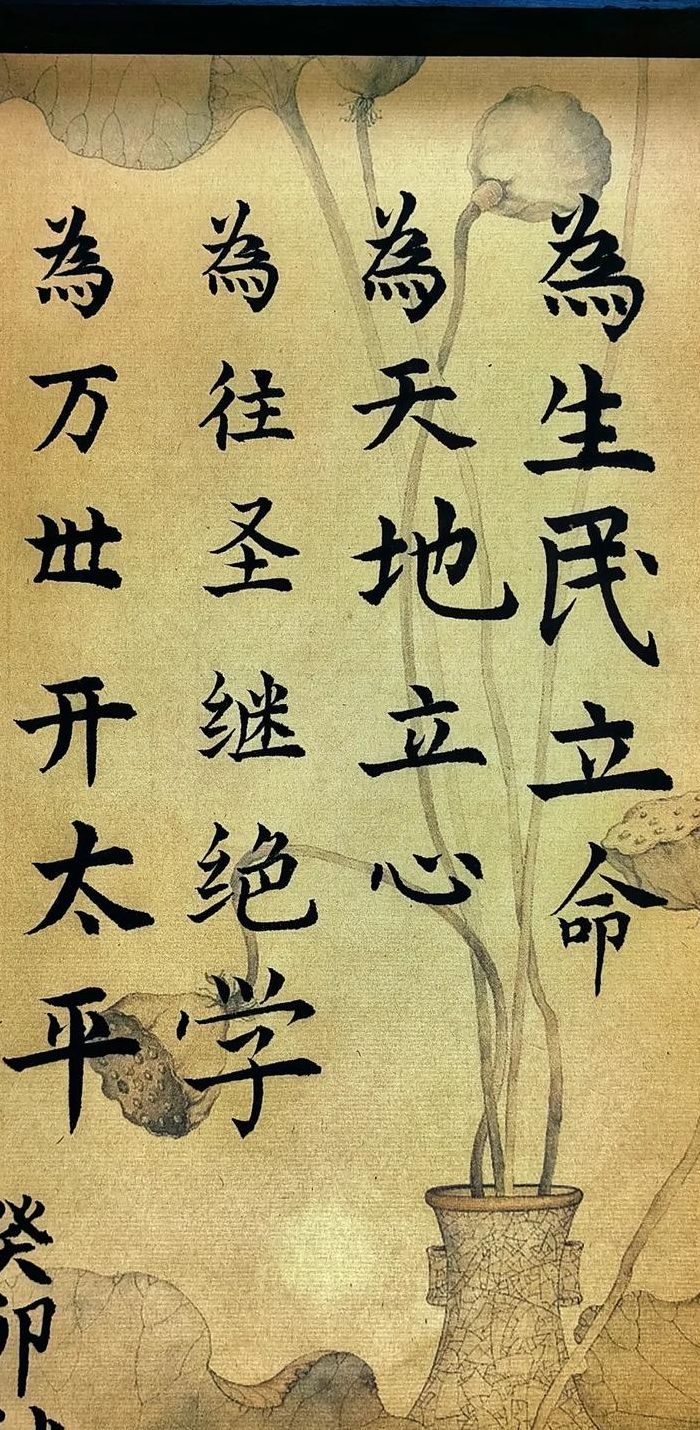 為生民立命
為天地立心
為往圣继绝学
為万世开太平
癸卯